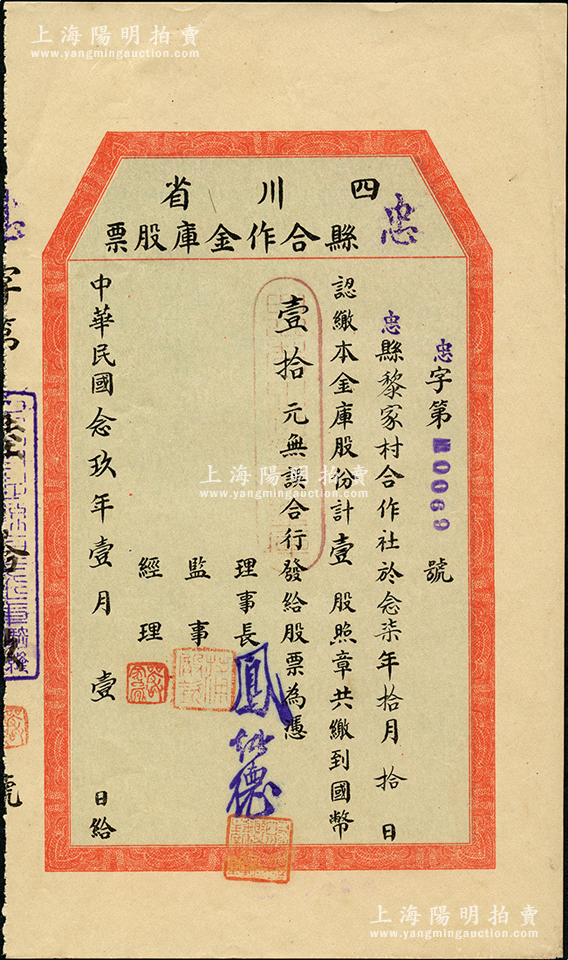 上海陽明拍賣
www.yangmingauction.com
四川省
忠縣合作金庫股票
忠字第00069號
忠縣黎家村合作社於念柒年拾月拾日
認繳本金庫股份計壹股照章共繳到國幣
壹拾元無誤合行發給股票為憑
理事長
鳳
德
監事
經理
中華民國念玖年壹月壹日給
忠字第
號
上海陽明拍賣
www.yangmingauction.com
上海陽明拍賣
www.yangmingauction.com